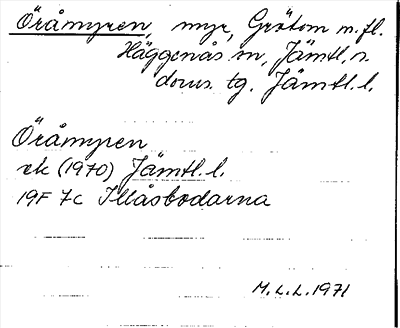 Öråmyren, myr, Grötom m.fl.
Häggenås sn, Jämtl. n.
doms. tg. Jämtl. l.
Öråmyren
ek (1970) Jämtl. l.
19F 7c Illåsbodarna
M.L.L. 1971